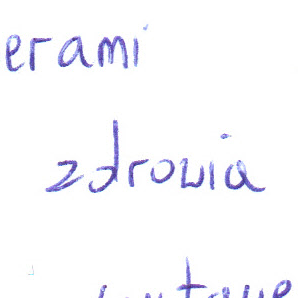 erami
zdrowia